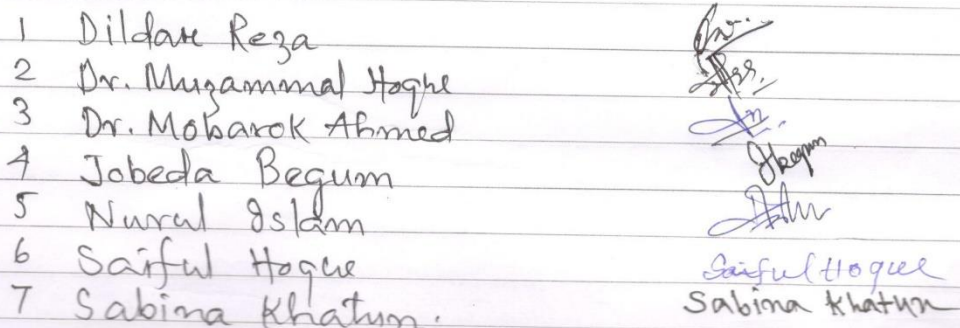 1 Dildare Reza
2 Dr. Muzammal Hoque
3 Dr. Mobarok Ahmed
4 Jobeda Begum JBegum
5 Nurul Islam
6 Saiful Hoque Saiful Hoque
7 Sabina Khatun. Sabina Khatun